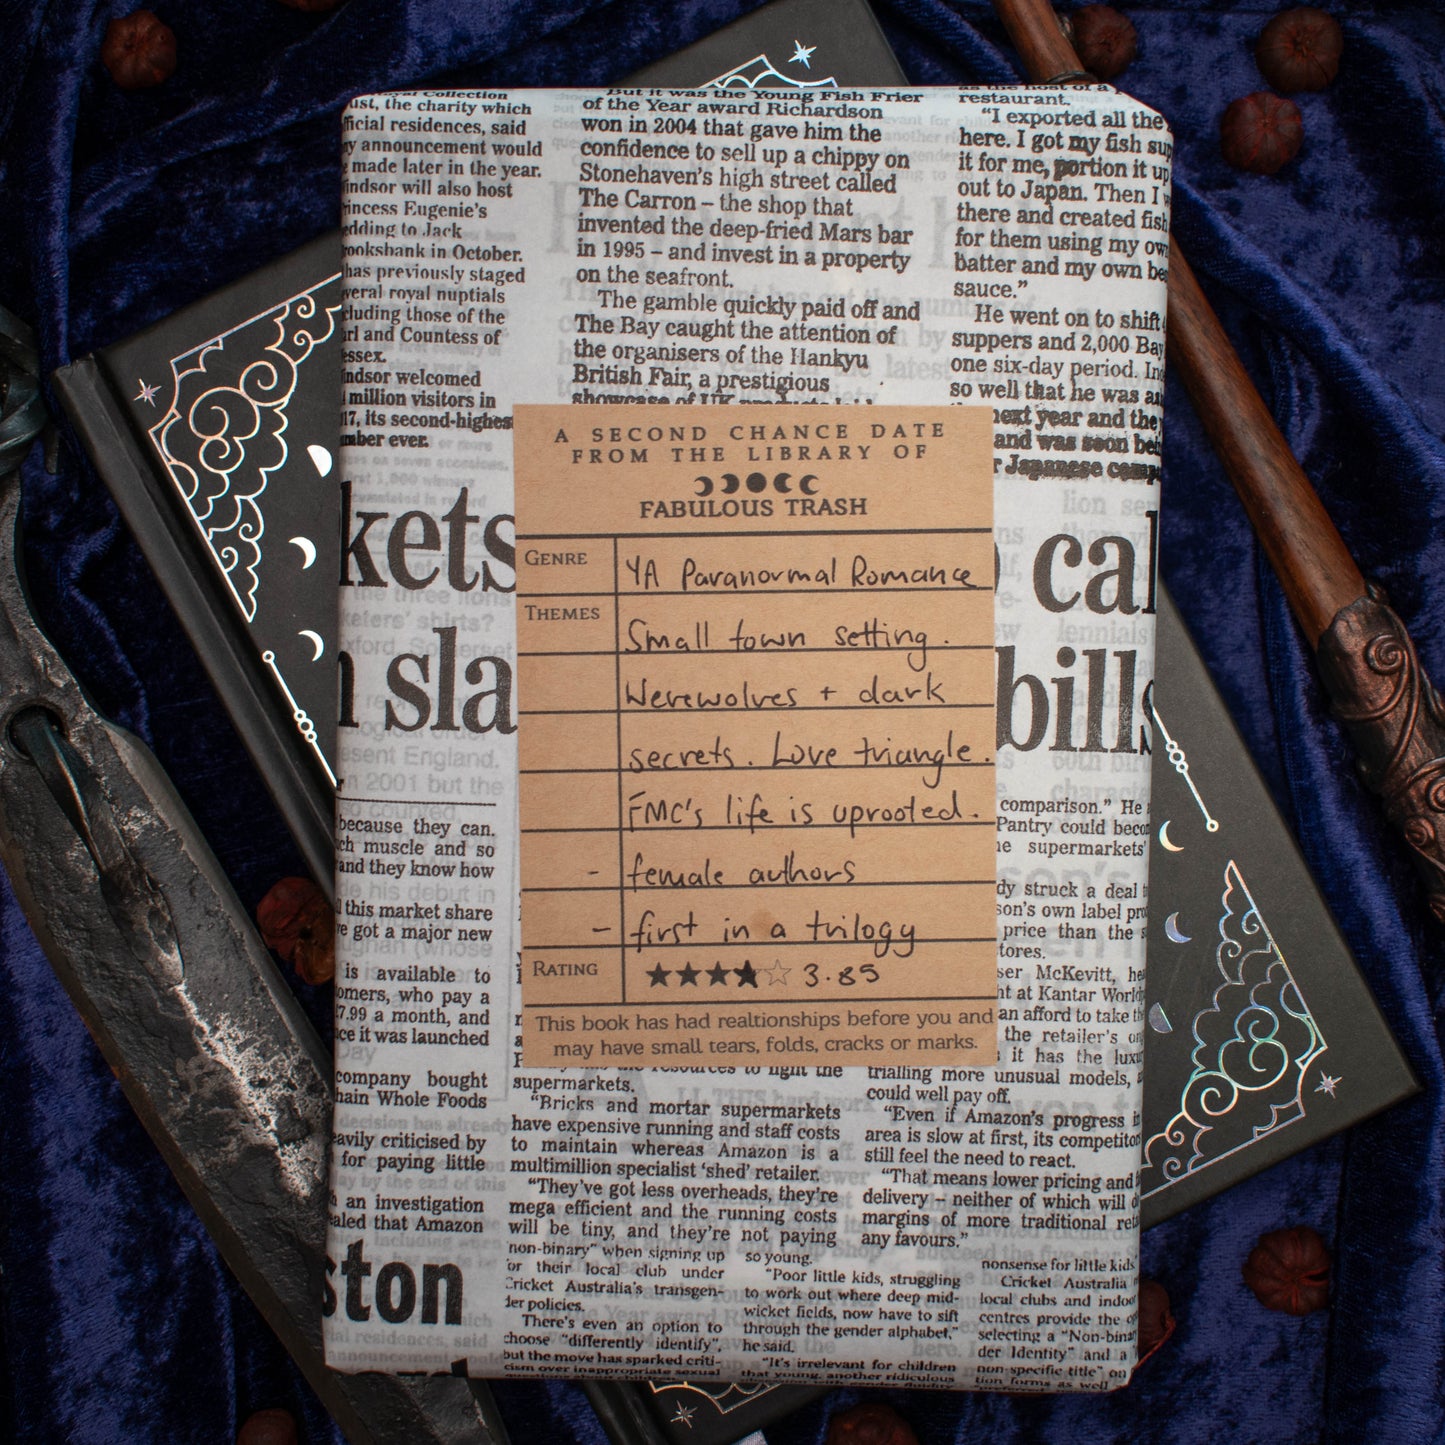 Royal Collection
ust, the charity which
fficial residences, said
y announcement would
made later in the year.
indsor will also host
rincess Eugenie's
edding to Jack
ooksbank in October.
has previously staged
veral royal nuptials
cluding those of the
arl and Countess of
essex.
indsor welcomed
million visitors in
17, its second-highest
mber ever.
But it was the Young Fish Frier
of the Year award Richardson
won in 2004 that gave him the
confidence to sell up a chippy on
Stonehaven's high street called
The Carron – the shop that
invented the deep-fried Mars bar
in 1995 – and invest in a property
on the seafront.
The gamble quickly paid off and
The Bay caught the attention of
the organisers of the Hankyu
British Fair, a prestigious
showcase of UK products
as the host of a
restaurant.
"I exported all the
here. I got my fish sup
it for me, portion it up
out to Japan. Then I w
there and created fish
for them using my own
batter and my own be
sauce."
He went on to shift
suppers and 2,000 Bay
one six-day period.
so well that he was as
next year and the
and was soon bei
r Japanese comp
A SECOND CHANCE DATE
FROM THE LIBRARY OF
FABULOUS TRASH
GENRE YA Paranormal Romance
THEMES Small town setting.
Werewolves + dark
secrets. Love triangle.
FMC's life is uprooted.
- female authors
- first in a trilogy
RATING ★★★★☆ 3.85
This book has had realtionships before you and
may have small tears, folds, cracks or marks.
kets
sla
cal
bills
because they can.
ch muscle and so
and they know how
this market share
ve got a major new
is available to
omers, who pay a
7.99 a month, and
ce it was launched
company bought
hain Whole Foods
eavily criticised by
for paying little
an investigation
ealed that Amazon
ston
comparison." He
Pantry could becom
e supermarkets'
dy struck a deal
son's own label pro
price than the s
tores.
ser McKevitt, he
ht at Kantar World
an afford to take th
the retailer's
it has the luxu
trialling more unusual models,
could well pay off.
"Even if Amazon's progress i
area is slow at first, its competitor
still feel the need to react.
"That means lower pricing and
delivery – neither of which will
margins of more traditional ret
any favours."
resources to fight the
supermarkets.
"Bricks and mortar supermarkets
have expensive running and staff costs
to maintain whereas Amazon is a
multimillion specialist 'shed' retailer.
"They've got less overheads, they're
mega efficient and the running costs
will be tiny, and they're not paying
non-binary" when signing up
or their local club under
Cricket Australia's transgen-
der policies.
There's even an option to
choose "differently identify",
but the move has sparked criti-
cism over inappropriate sexual
questions about children
so young.
"Poor little kids, struggling
to work out where deep mid-
wicket fields, now have to sift
through the gender alphabet,"
he said.
"It's irrelevant for children
that young, another ridiculous
nonsense for little kids
Cricket Australia
local clubs and indoo
centres provide the
selecting a "Non-binar
der Identity" and a
non-specific title" on
tion forms as well